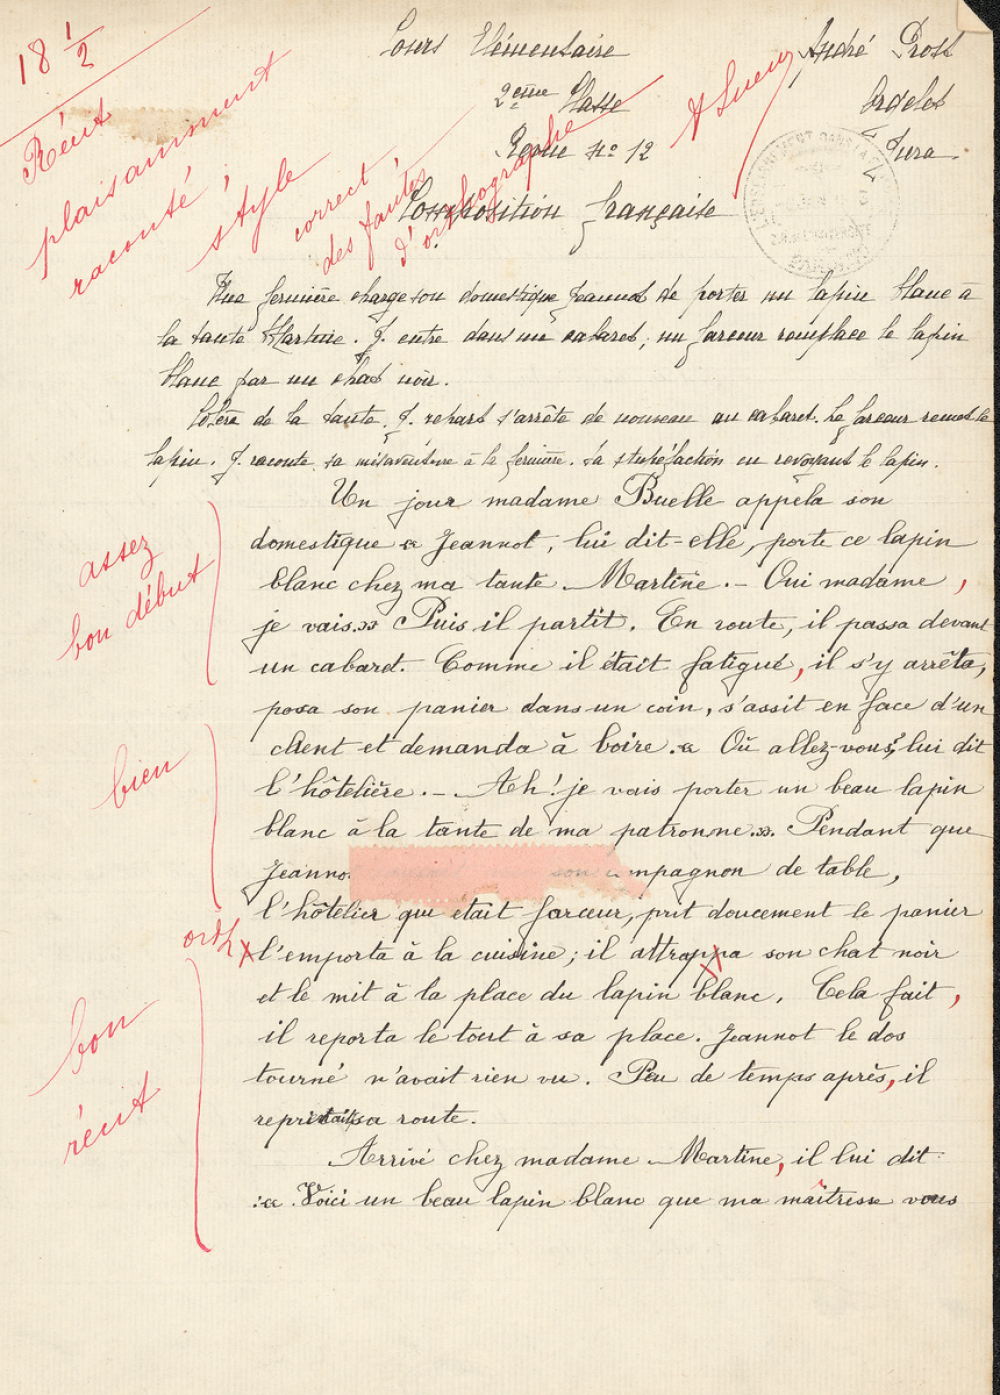 18 1/2
Récit
plaisamment
raconté,
style
correct
des fautes
d'orthographe
Cours Elémentaire
2ème Classe
Revue No 12
André Prost
Orgelet
Jura
Composition française
Une fermière charge son domestique Jeannot de porter un lapin blanc à
la tante Martine. J. entre dans un cabaret; un farceur remplace le lapin
blanc par un chat noir.
Colère de la tante. J. repart s'arrête de nouveau au cabaret. Le farceur remet le
lapin. J. raconte sa mésaventure à la fermière. Sa stupéfaction en revoyant le lapin.
assez
bon début
Un jour madame Buelle appela son
domestique « Jeannot, lui dit-elle, porte ce lapin
blanc chez ma tante Martine. - Oui madame,
je vais.» Puis il partit. En route, il passa devant
un cabaret. Comme il était fatigué, il s'y arrêta,
posa son panier dans un coin, s'assit en face d'un
client et demanda à boire. « Où allez-vous? lui dit
l'hôtelière. - Ah! je vais porter un beau lapin
blanc à la tante de ma patronne.». Pendant que
bien
Jeannot son compagnon de table,
l'hôtelier qui était farceur, prit doucement le panier
orth
l'emporta à la cuisine; il attrappa son chat noir
et le mit à la place du lapin blanc. Cela fait,
il reporta le tout à sa place. Jeannot le dos
tourné n'avait rien vu. Peu de temps après, il
reprit sa route.
bon
récit
Arrivé chez madame Martine, il lui dit
: « Voici un beau lapin blanc que ma maîtresse vous